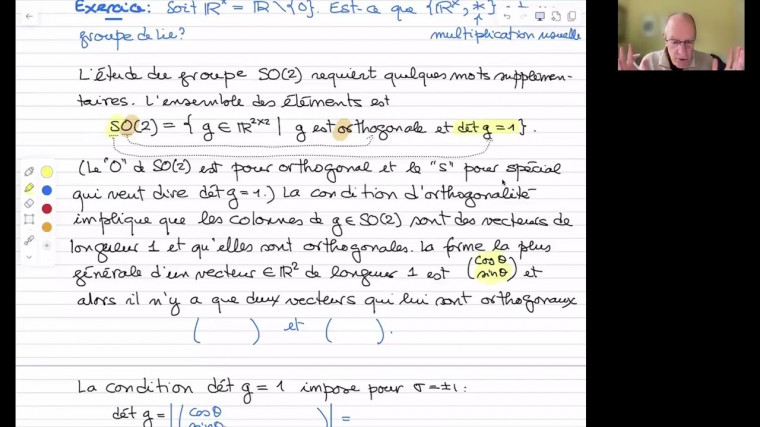 Exercice: Soit ℝˣ = ℝ \ {0}. Est-ce que {ℝˣ, *}
groupe de Lie? multiplication usuelle
L'étude du groupe SO(2) requiert quelques mots supplémen-
taires. L'ensemble des éléments est
SO(2) = { g ∈ ℝ²ˣ² | g est orthogonale et dét g = 1 }.
(Le "O" de SO(2) est pour orthogonal et le "S" pour spécial
qui veut dire dét g = 1.) La condition d'orthogonalité
implique que les colonnes de g ∈ SO(2) sont des vecteurs de
longueur 1 et qu'elles sont orthogonales. La forme la plus
générale d'un vecteur ∈ ℝ² de longueur 1 est (cosθ sinθ) et
alors il n'y a que deux vecteurs qui lui sont orthogonaux
( ) et ( ).
La condition dét g = 1 impose pour σ = ±1:
dét g = |(cosθ sinθ )| =